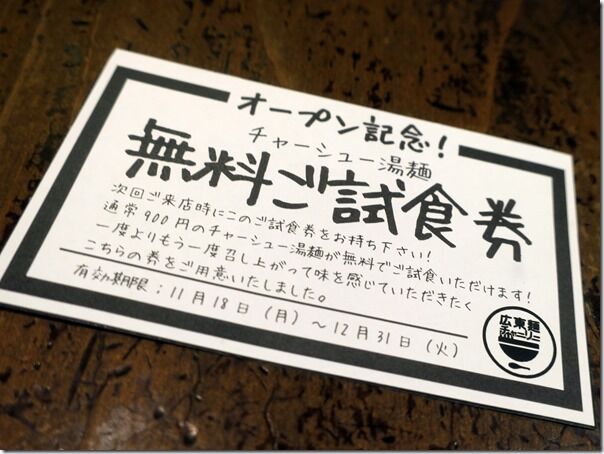 オープン記念！
チャーシュー湯麺
無料ご試食券
次回ご来店時にこのご試食券をお持ち下さい！
通常900円のチャーシュー湯麺が無料でご試食いただけます！
一度よりもう一度召し上がって味を感じていただきたく
こちらの券をご用意いたしました。
有効期限：11月18日（月）～12月31日（火）
広東麺
チャーリー